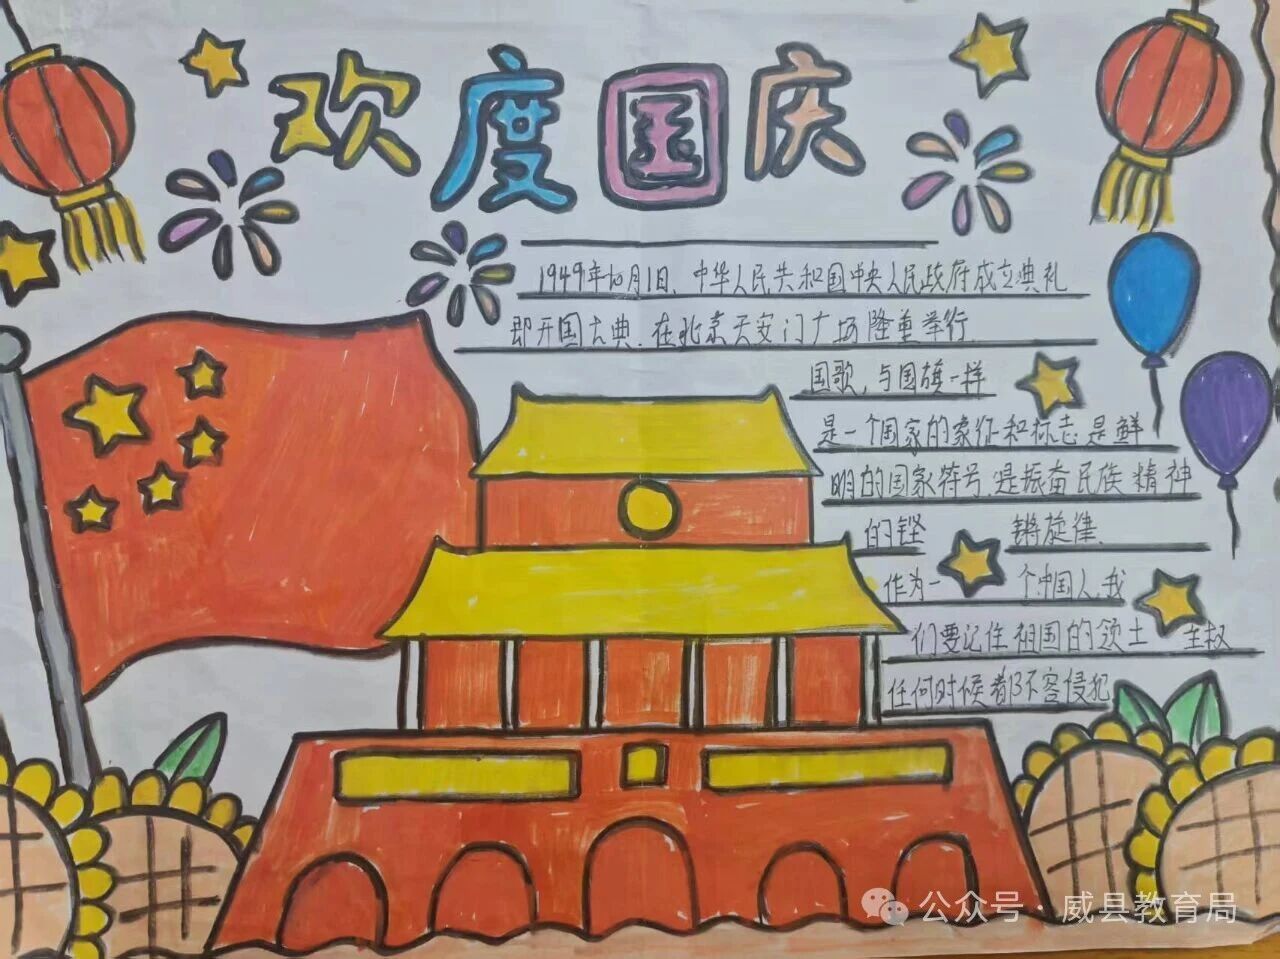 欢度国庆
1949年10月1日、中华人民共和国中央人民政府成立典礼
即开国大典.在北京天安门广场隆重举行.
国歌,与国旗一样
是一个国家的象征和标志是鲜
明的国家符号.是振奋民族精神
的铿锵旋律.
作为一个中国人,我
们要记住祖国的领土主权
任何时候都不容侵犯
公众号·威县教育局